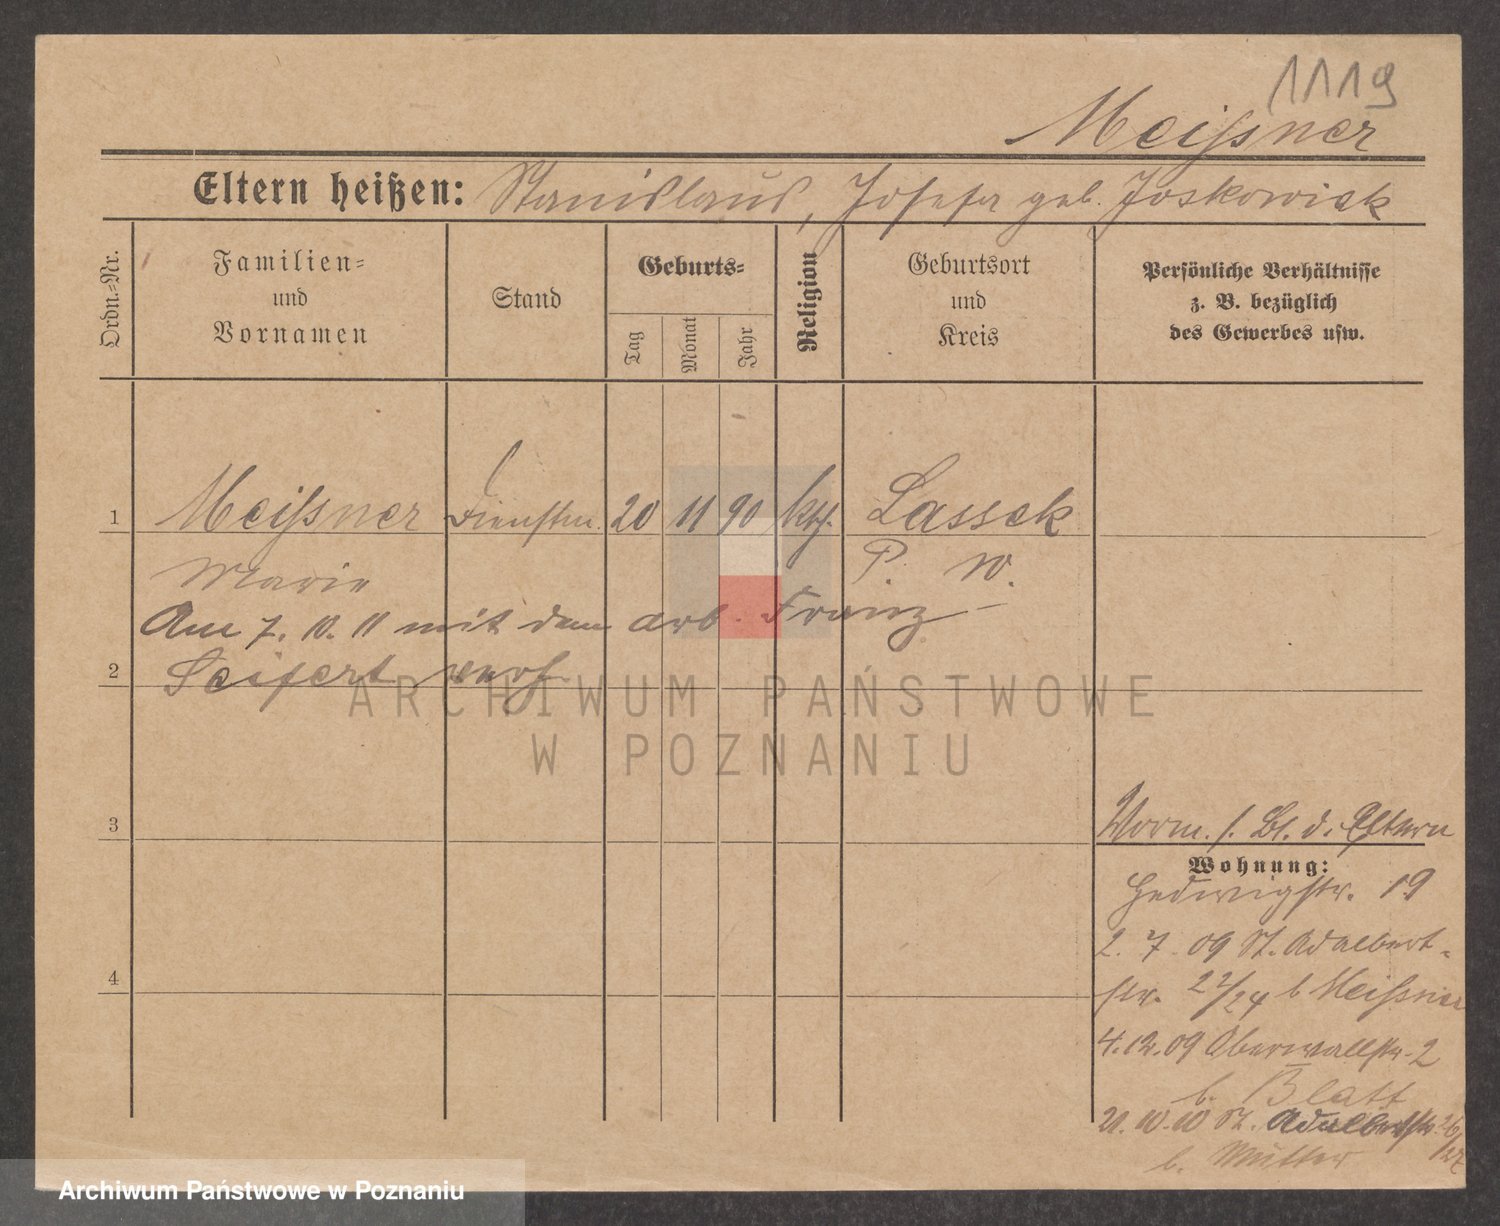 1119
Meißner
Eltern heißen: Stanislaus, Josefa geb. Joskowiak
Ordn.=Nr.
Familien=
und
Vornamen
Stand
Geburts=
Tag
Monat
Jahr
Religion
Geburtsort
und
Kreis
Persönliche Verhältnisse
z. B. bezüglich
des Gewerbes usw.
1 Meißner Dienstm. 20 11 90 kth. Lassek
Marie P. W.
Am 7. 10. 11 mit dem arb. Franz
2 Seifert verh.
ARCHIWUM PAŃSTWOWE
W POZNANIU
3
Vorm. s. Bl. d. Eltern
Wohnung:
Hedwigstr. 19
2. 7. 09 St. Adalbert-
str. 22/24 b Meißner
4
4.12.09 Oberwallstr. 2
b. Blatt
21. 10. 10 St. Adalbertstr. 26/27
b. Mutter
Archiwum Państwowe w Poznaniu